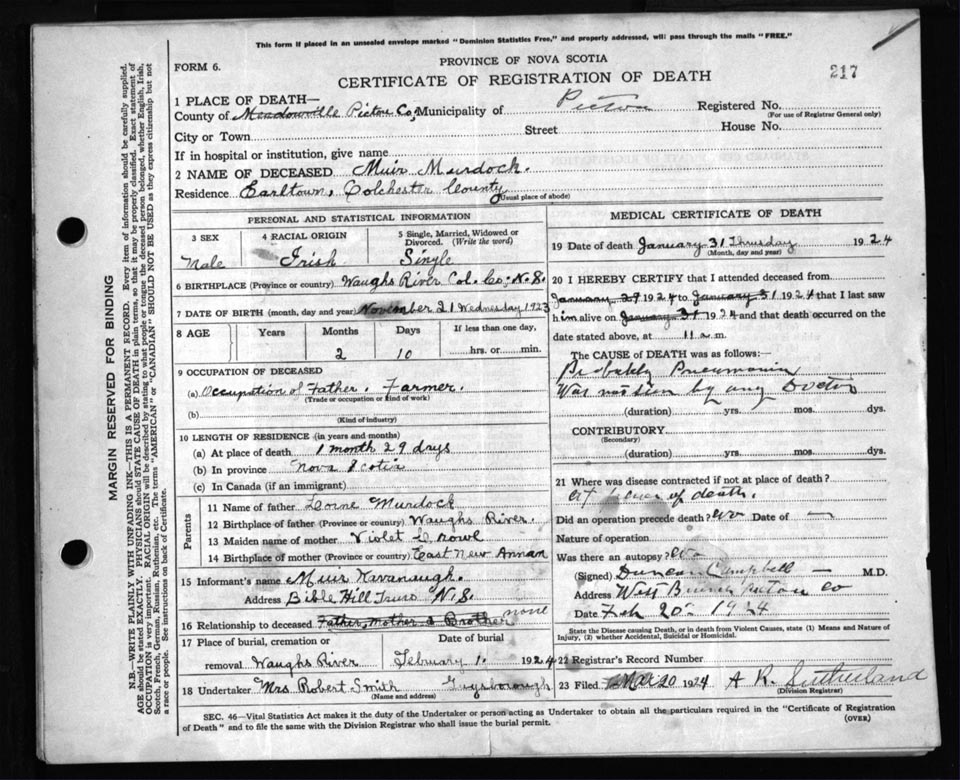 This form if placed in an unsealed envelope marked "Dominion Statistics Free," and properly addressed, will pass through the mails "FREE."
FORM 6.
PROVINCE OF NOVA SCOTIA
CERTIFICATE OF REGISTRATION OF DEATH
217
1 PLACE OF DEATH—
County of Meadowville Pictou Co; Municipality of Pictou Registered No.
(For use of Registrar General only)
City or Town Street House No.
If in hospital or institution, give name
2 NAME OF DECEASED Muir Murdock.
Residence Earltown, Colchester County
(Usual place of abode)
PERSONAL AND STATISTICAL INFORMATION
3 SEX 4 RACIAL ORIGIN 5 Single, Married, Widowed or Divorced. (Write the word)
Male Irish Single
6 BIRTHPLACE (Province or country) Waughs River Col. Co; N.S.
7 DATE OF BIRTH (month, day and year) November 21 Wednesday 1923
8 AGE Years Months Days If less than one day,
2 10 hrs. or min.
9 OCCUPATION OF DECEASED
(a) Occupation of Father. Farmer.
(Trade or occupation or kind of work)
(b)
(Kind of industry)
10 LENGTH OF RESIDENCE (in years and months)
(a) At place of death 1 month 29 days
(b) In province Nova Scotia
(c) In Canada (if an immigrant)
Parents
11 Name of father Lorne Murdock
12 Birthplace of father (Province or country) Waughs River.
13 Maiden name of mother Violet
14 Birthplace of mother (Province or country) East New Annan
15 Informant's name Muir Kavanaugh.
Address Bible Hill Truro N.S.
16 Relationship to deceased Father, Mother & Brother none
17 Place of burial, cremation or Date of burial
removal Waughs River February 1. 1924
18 Undertaker Mrs. Robert Smith Guysborough
(Name and address)
MEDICAL CERTIFICATE OF DEATH
19 Date of death January 31 Thursday 1924
(Month, day and year)
20 I HEREBY CERTIFY that I attended deceased from
January 29 1924 to January 31 1924 that I last saw
him alive on January 31 1924 and that death occurred on the
date stated above, at 11 a m.
The CAUSE OF DEATH was as follows:
Probably Pneumonia
Was not seen by any Doctor
(duration) yrs. mos. dys.
CONTRIBUTORY
(Secondary)
(duration) yrs. mos. dys.
21 Where was disease contracted if not at place of death?
At place of death.
Did an operation precede death? No Date of —
Nature of operation
Was there an autopsy? No
(Signed) Duncan Campbell — M.D.
Address West Pictou Co
Date Feb 20 1924
State the Disease causing Death, or in death from Violent Causes, state (1) Means and Nature of
Injury, (2) whether Accidental, Suicidal or Homicidal.
22 Registrar's Record Number
23 Filed Mar 20 1924 A R. Sutherland
(Division Registrar)
SEC. 46—Vital Statistics Act makes it the duty of the Undertaker or person acting as Undertaker to obtain all the particulars required in the "Certificate of Registration
of Death" and to file the same with the Division Registrar who shall issue the burial permit.
(OVER)
MARGIN RESERVED FOR BINDING
N.B.—WRITE PLAINLY WITH UNFADING INK—THIS IS A PERMANENT RECORD. Every item of information should be carefully supplied.
AGE should be stated EXACTLY. PHYSICIANS should STATE CAUSE OF DEATH in plain terms, so that it may be properly classified. Exact statement of
OCCUPATION is very important. RACIAL ORIGIN will be described by stating to what people or tongue the deceased person belonged, whether English, Irish,
Scotch, French, German, Russian, Ruthenian, etc. The terms "AMERICAN" or "CANADIAN" SHOULD NOT BE USED as they express citizenship but not
a race or people. See instructions on back of Certificate.